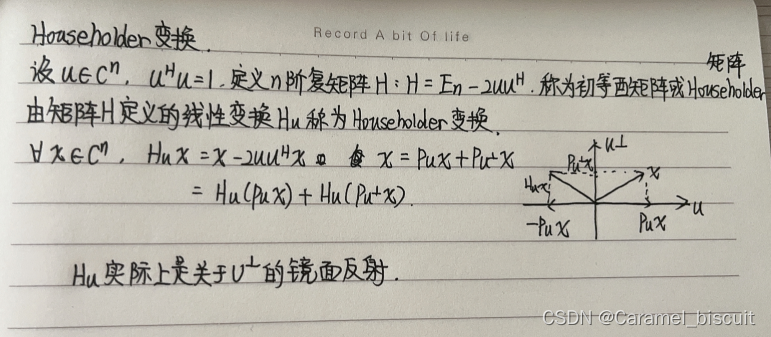 Record A bit Of life
Householder 变换.
设 u∈Cⁿ, uᴴu=1. 定义n阶复矩阵H:H=En-2uuᴴ. 称为初等酉矩阵或Householder矩阵
由矩阵H定义的线性变换Hu称为Householder变换.
∀x∈Cⁿ, Hux=x-2uuᴴx x=Pux+Pu⊥x
=Hu(Pux)+Hu(Pu⊥x).
u⊥
Pu⊥x
x
Hux
u
-Pux
Pux
Hu实际上是关于U⊥的镜面反射.
CSDN @Caramel_biscuit